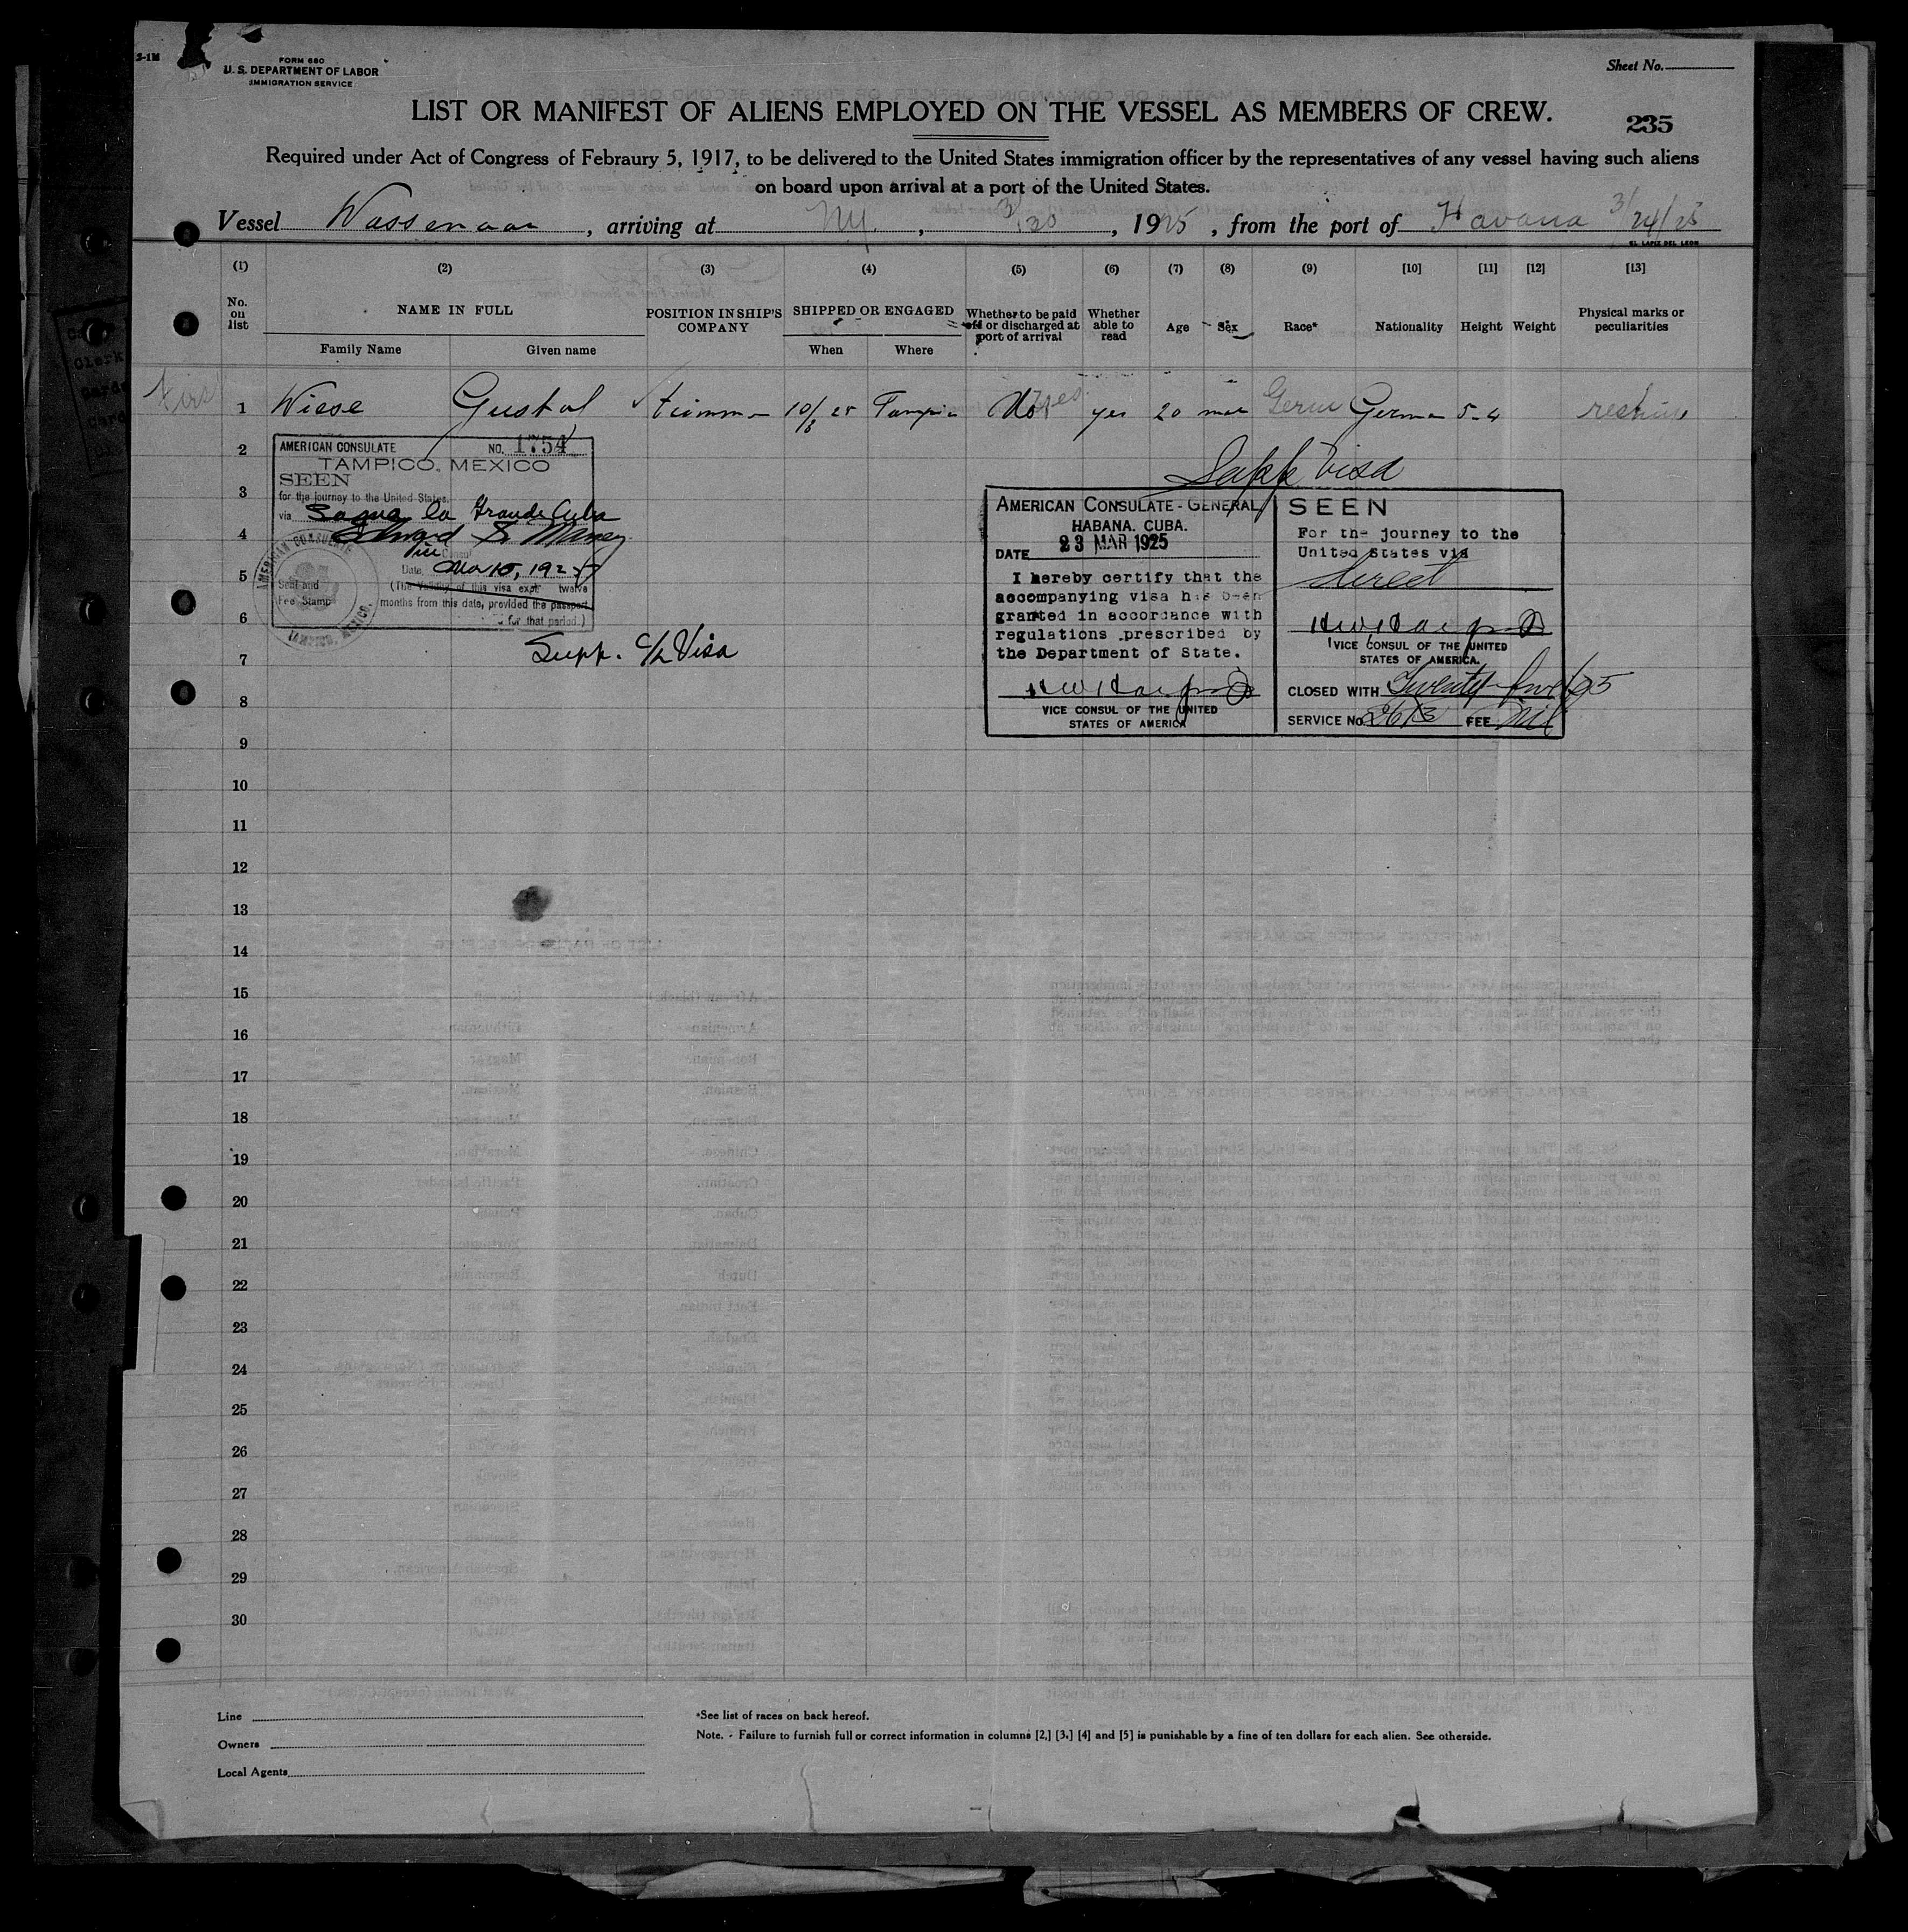 S-1M
FORM 680
U. S. DEPARTMENT OF LABOR
IMMIGRATION SERVICE
Sheet No.
LIST OR MANIFEST OF ALIENS EMPLOYED ON THE VESSEL AS MEMBERS OF CREW.
235
Required under Act of Congress of Febraury 5, 1917, to be delivered to the United States immigration officer by the representatives of any vessel having such aliens
on board upon arrival at a port of the United States.
Vessel Wassenaar, arriving at NY., 3/30, 1925, from the port of Havana 3/24/25
EL LAPIZ DEL LEON
(1) (2) (3) (4) (5) (6) (7) (8) (9) [10] [11] [12] [13]
No. on list NAME IN FULL POSITION IN SHIP'S COMPANY SHIPPED OR ENGAGED Whether to be paid off or discharged at port of arrival Whether able to read Age Sex Race* Nationality Height Weight Physical marks or peculiarities
Family Name Given name When Where
1 Wiese Gustav 10/3 25 Tampico No yes yes 20 Germ German 5-4
2
Supp Visa
AMERICAN CONSULATE NO. 1754
TAMPICO, MEXICO
SEEN
for the journey to the United States,
via Sagua la Grande Cuba
Edward S. Maney
Vice Consul
Date, Mar 10, 1925
(The validity of this visa expires twelve
months from this date, provided the passport
for that period.)
AMERICAN CONSULATE
TAMPICO, MEXICO.
Seal and
Fee Stamp
3
4
5
6
7
Supp. C/L Visa
AMERICAN CONSULATE-GENERAL
HABANA. CUBA.
DATE 23 MAR 1925
I hereby certify that the
accompanying visa has been
granted in accordance with
regulations prescribed by
the Department of State.
VICE CONSUL OF THE UNITED
STATES OF AMERICA
SEEN
For the journey to the
United States via
direct
VICE CONSUL OF THE UNITED
STATES OF AMERICA.
CLOSED WITH Twenty five/25
SERVICE No. 2613 FEE Nil
8
9
10
11
12
13
14
15
16
17
18
19
20
21
22
23
24
25
26
27
28
29
30
Line
Owners
Local Agents
*See list of races on back hereof.
Note. - Failure to furnish full or correct information in columns [2,] [3,] [4] and [5] is punishable by a fine of ten dollars for each alien. See otherside.